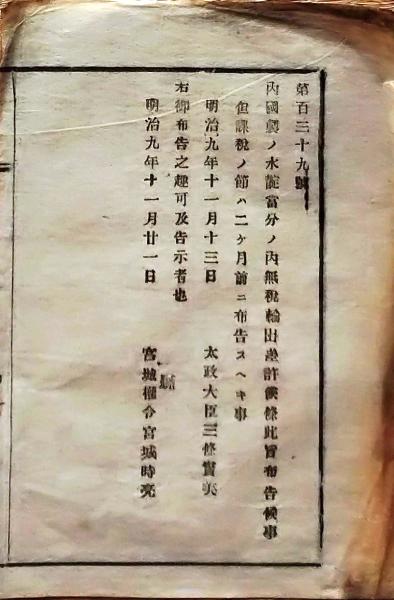 第百三十九號
內國製ノ水靛當分ノ內無稅輸出差許候條此旨布告候事
但課稅ノ節ハ二ケ月前ニ布告スヘキ事
明治九年十一月十三日 太政大臣三條實美
右御布告之趣可及告示者也
明治九年十一月廿一日 宮城縣權令宮城時亮